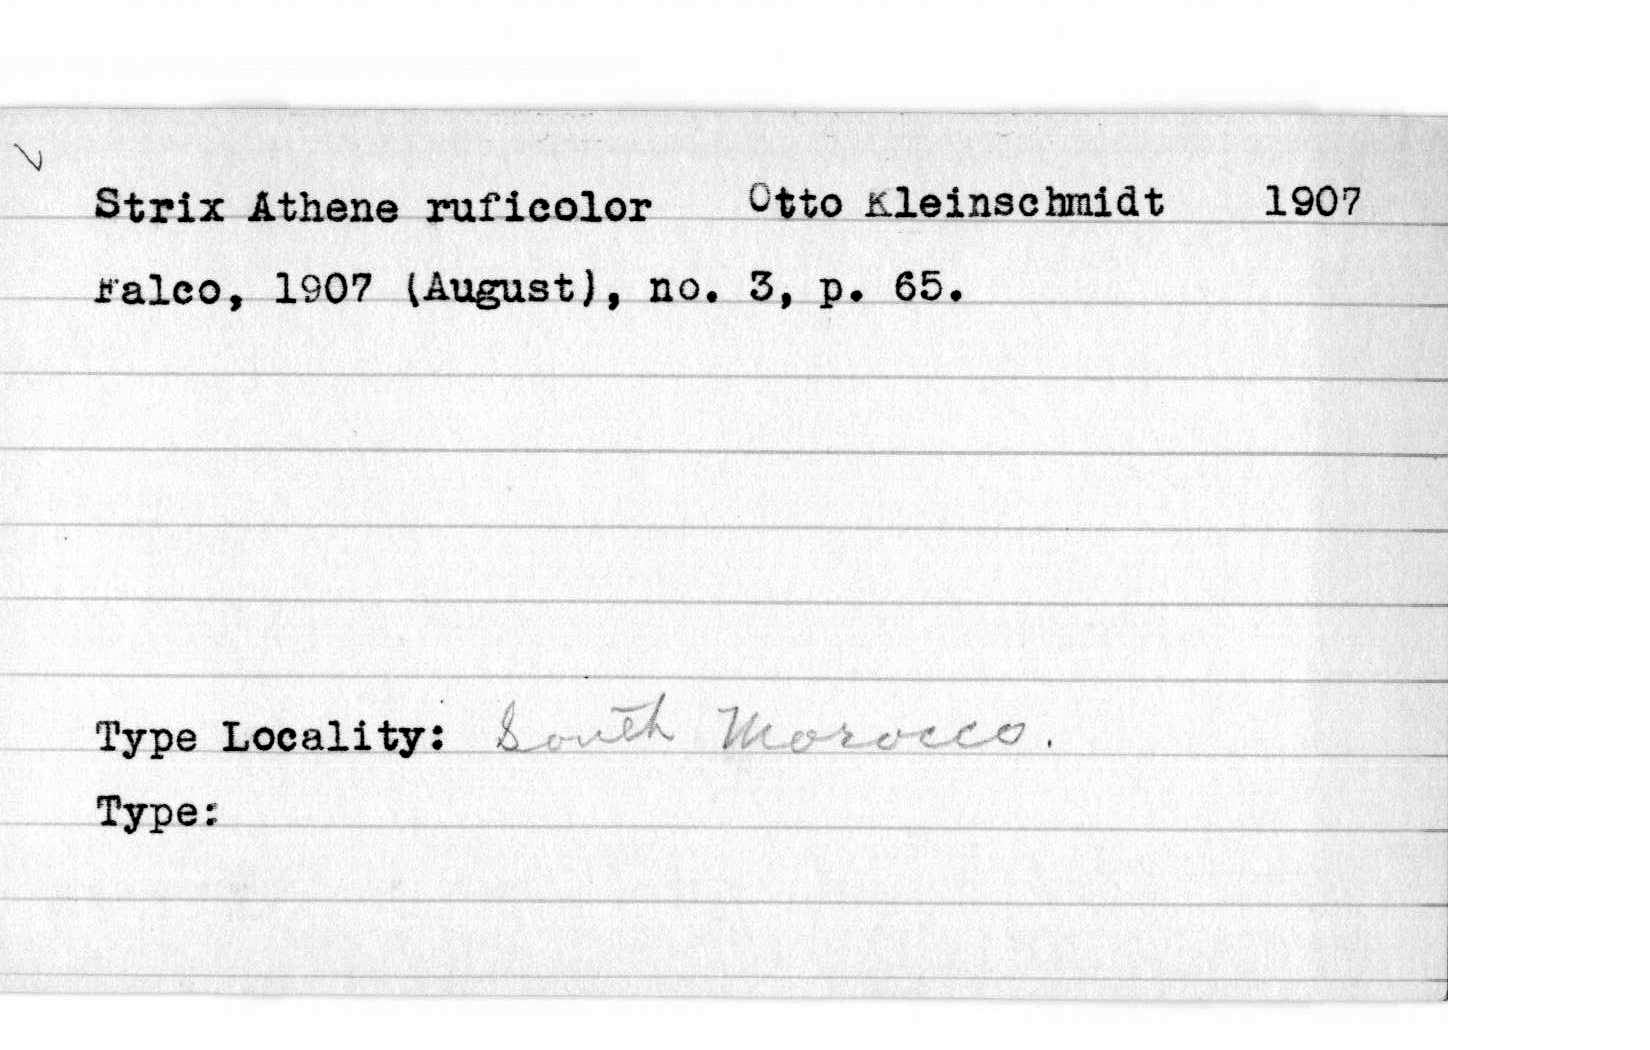 Strix Athene ruficolor Otto Kleinschmidt 1907
Falco, 1907 (August), no. 3, p. 65.
Type Locality: South Morocco.
Type: